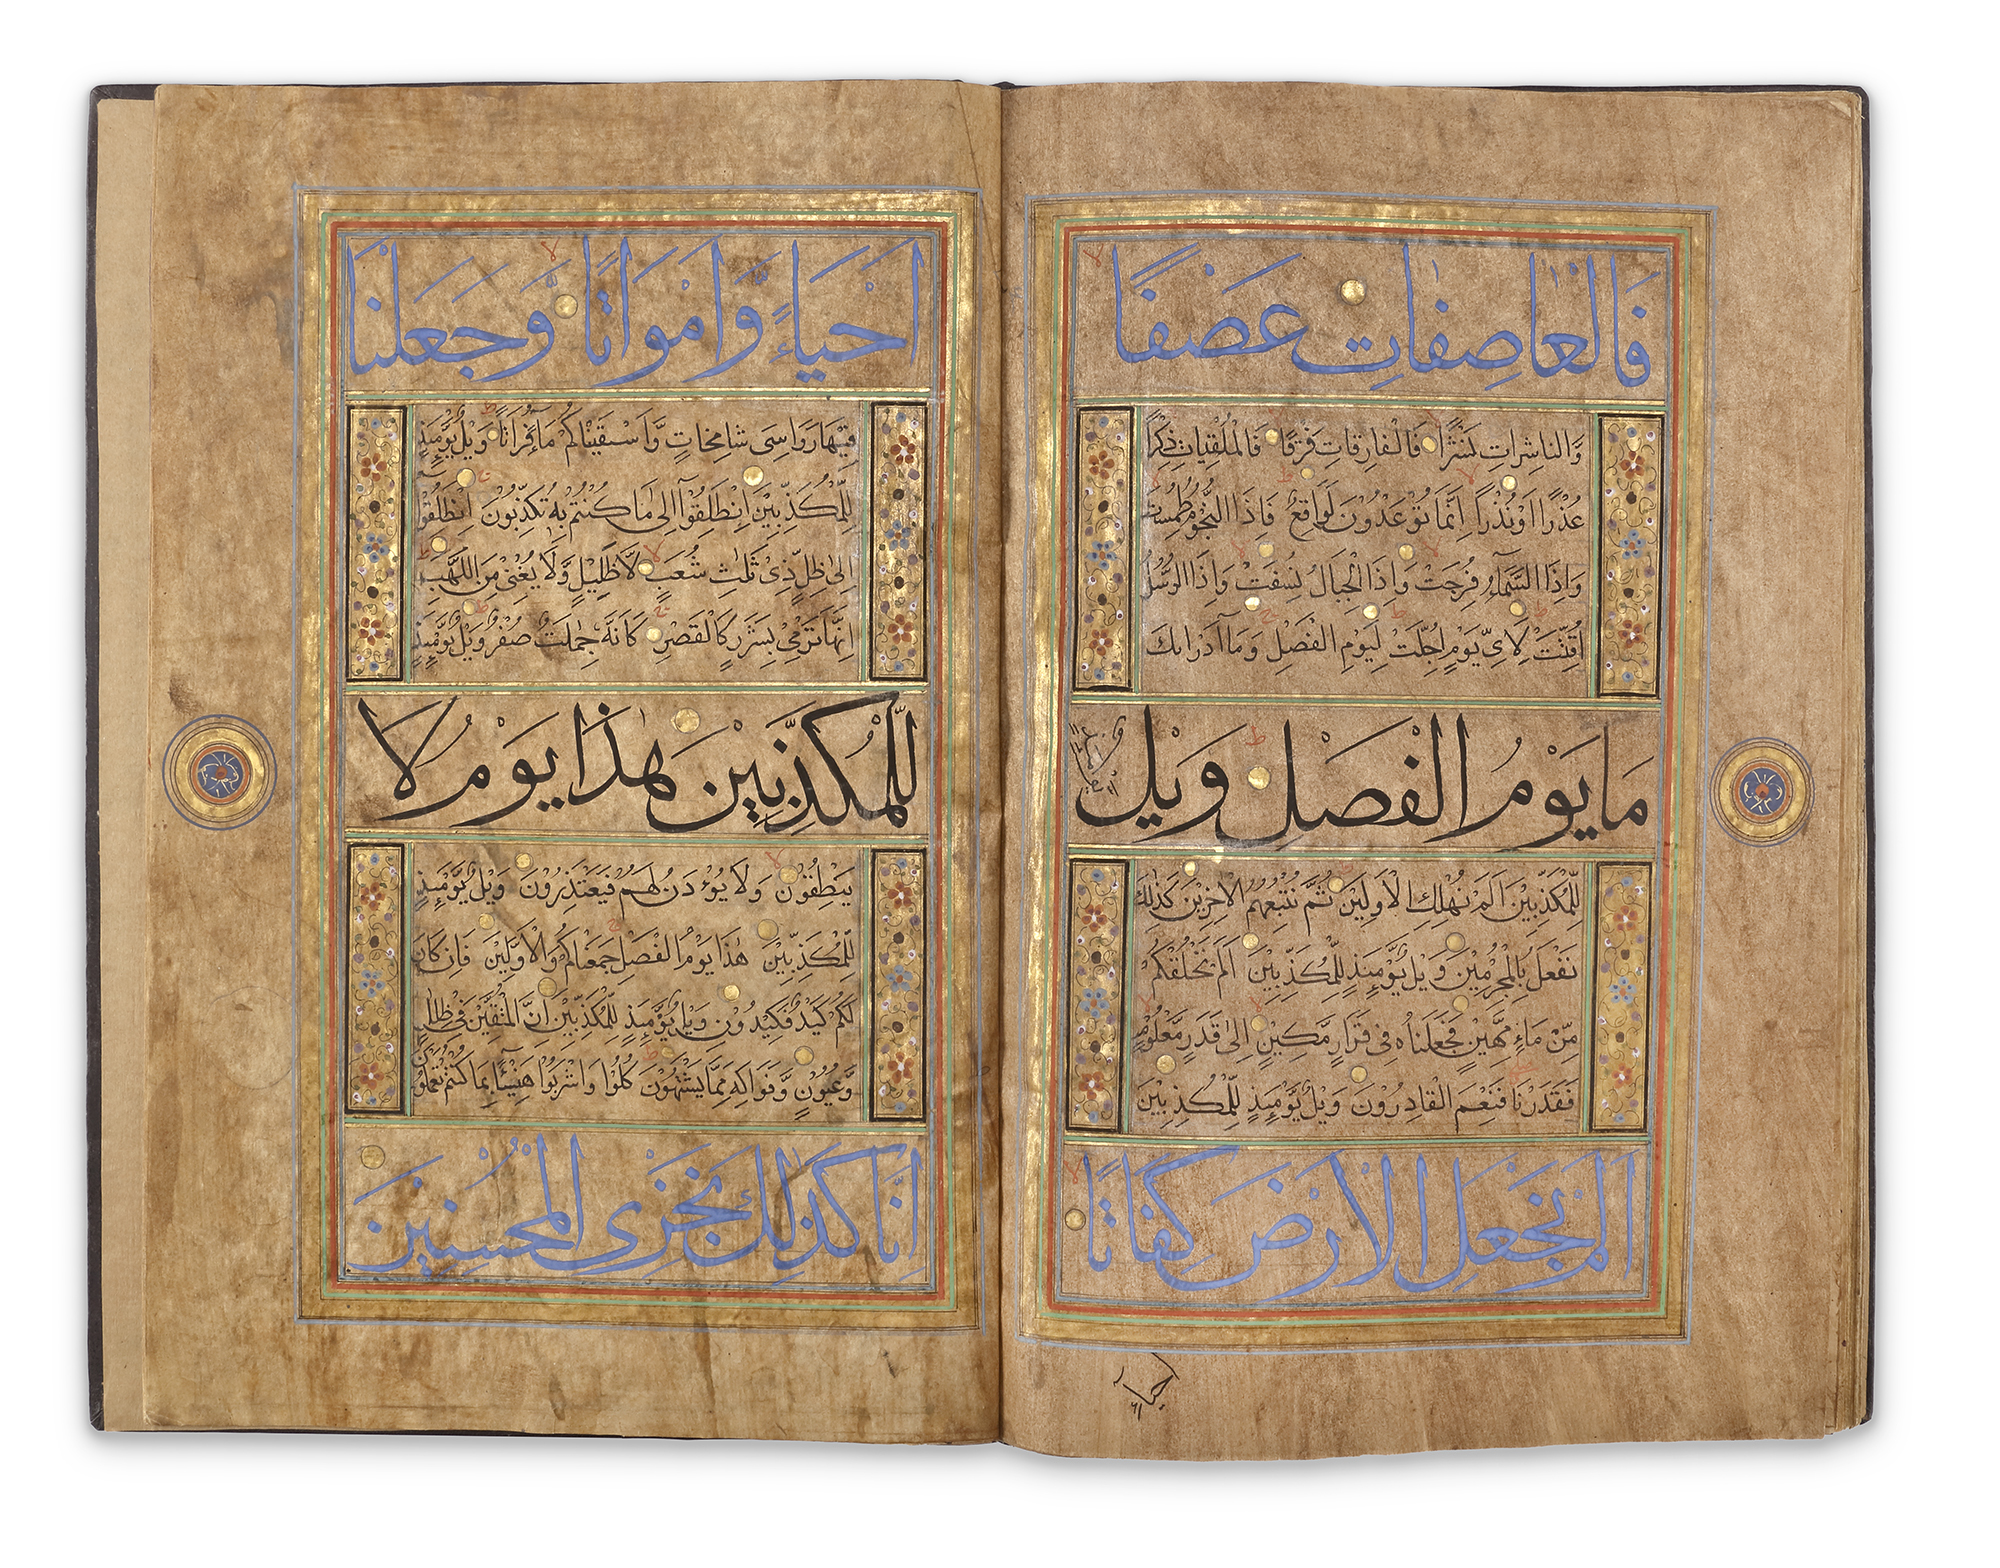 فَالْعَاصِفَاتِ عَصْفًا
وَّالنَّاشِرَاتِ نَشْرًا فَالْفَارِقَاتِ فَرْقًا فَالْمُلْقِيَاتِ ذِكْرًا
عُذْرًا اَوْ نُذْرًا اِنَّمَا تُوْعَدُوْنَ لَوَاقِعٌ فَاِذَا النُّجُوْمُ طُمِسَتْ
وَاِذَا السَّمَآءُ فُرِجَتْ وَاِذَا الْجِبَالُ نُسِفَتْ وَاِذَا الرُّسُلُ
اُقِّتَتْ لِاَىِّ يَوْمٍ اُجِّلَتْ لِيَوْمِ الْفَصْلِ وَمَآ اَدْرَاىكَ
مَا يَوْمُ الْفَصْلِ وَيْلٌ
لِّلْمُكَذِّبِيْنَ اَلَمْ نُهْلِكِ الْاَوَّلِيْنَ ثُمَّ نُتْبِعُهُمُ الْاٰخِرِيْنَ كَذٰلِكَ
نَفْعَلُ بِالْمُجْرِمِيْنَ وَيْلٌ يَّوْمَئِذٍ لِّلْمُكَذِّبِيْنَ اَلَمْ نَخْلُقْكُّمْ
مِّنْ مَّآءٍ مَّهِيْنٍ فَجَعَلْنَاهُ فِىْ قَرَارٍ مَّكِيْنٍ اِلٰى قَدَرٍ مَّعْلُوْمٍ
فَقَدَرْنَا فَنِعْمَ الْقَادِرُوْنَ وَيْلٌ يَّوْمَئِذٍ لِّلْمُكَذِّبِيْنَ
اَلَمْ نَجْعَلِ الْاَرْضَ كِفَاتًا
احياء
اَحْيَآءً وَّاَمْوَاتًا وَّجَعَلْنَا
فِيْهَا رَوَاسِىَ شَامِخَاتٍ وَّاَسْقَيْنَاكُمْ مَآءً فُرَاتًا وَيْلٌ يَّوْمَئِذٍ
لِّلْمُكَذِّبِيْنَ اِنْطَلِقُوْآ اِلٰى مَا كُنْتُمْ بِهٖ تُكَذِّبُوْنَ اِنْطَلِقُوْآ
اِلٰى ظِلٍّ ذِىْ ثَلٰثِ شُعَبٍ لَّا ظَلِيْلٍ وَّلَا يُغْنِىْ مِنَ اللَّهَبِ
اِنَّهَا تَرْمِىْ بِشَرَرٍ كَالْقَصْرِ كَاَنَّهٗ جِمٰلَتٌ صُفْرٌ وَيْلٌ يَّوْمَئِذٍ
لِّلْمُكَذِّبِيْنَ هٰذَا يَوْمُ لَا
يَنْطِقُوْنَ وَلَا يُؤْذَنُ لَهُمْ فَيَعْتَذِرُوْنَ وَيْلٌ يَّوْمَئِذٍ
لِّلْمُكَذِّبِيْنَ هٰذَا يَوْمُ الْفَصْلِ جَمَعْنَاكُمْ وَالْاَوَّلِيْنَ فَاِنْ كَانَ
لَكُمْ كَيْدٌ فَكِيْدُوْنِ وَيْلٌ يَّوْمَئِذٍ لِّلْمُكَذِّبِيْنَ اِنَّ الْمُتَّقِيْنَ فِىْ ظِلَالٍ
وَّعُيُوْنٍ وَّفَوَاكِهَ مِمَّا يَشْتَهُوْنَ كُلُوْا وَاشْرَبُوْا هَنِيْٓئًا بِمَا كُنْتُمْ تَعْمَلُوْنَ
اِنَّا كَذٰلِكَ نَجْزِى الْمُحْسِنِيْنَ